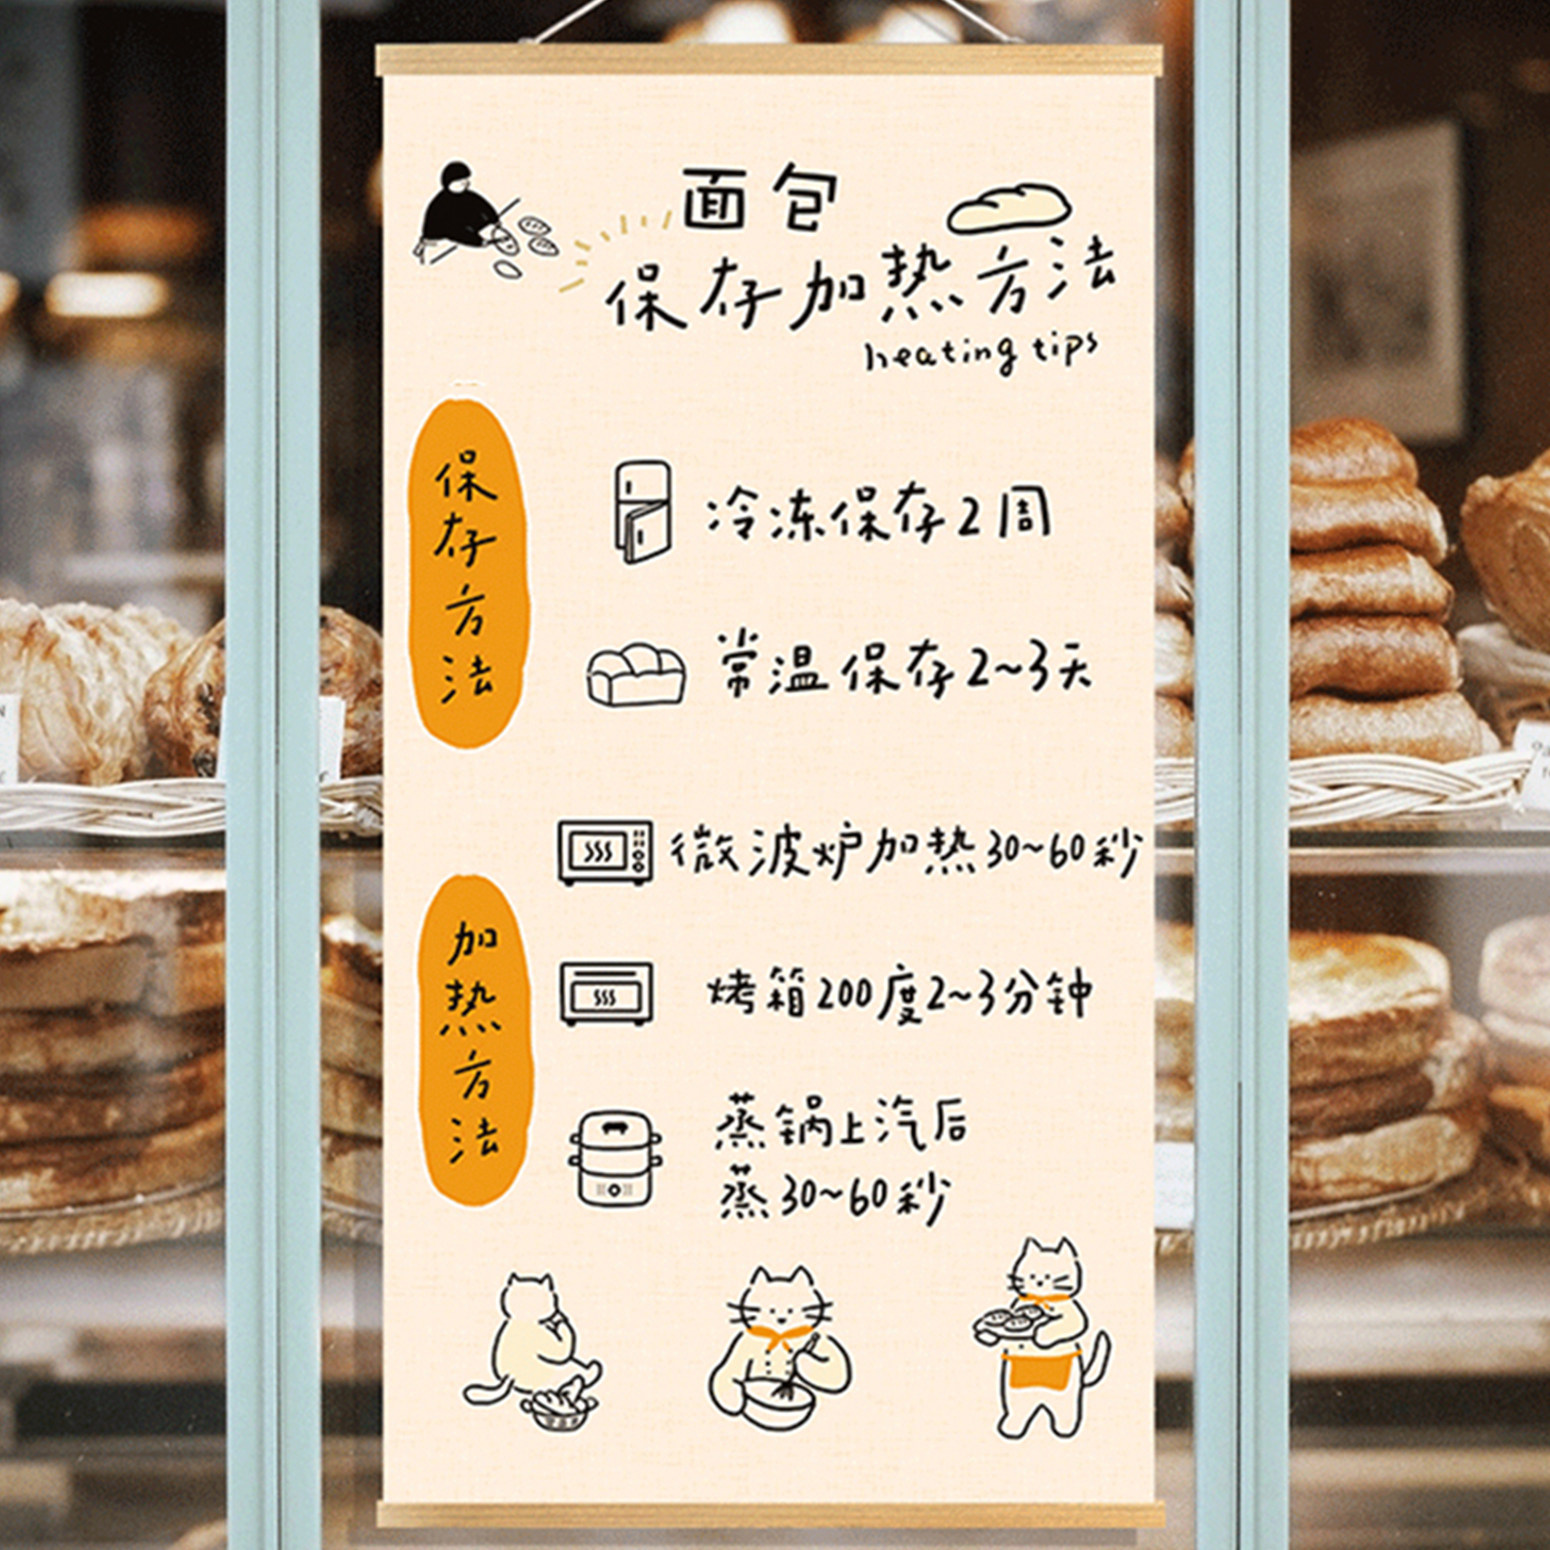 面包
保存加热方法
heating tips
保存方法
冷冻保存2周
常温保存2~3天
加热方法
微波炉加热30~60秒
烤箱200度2~3分钟
蒸锅上汽后
蒸30~60秒